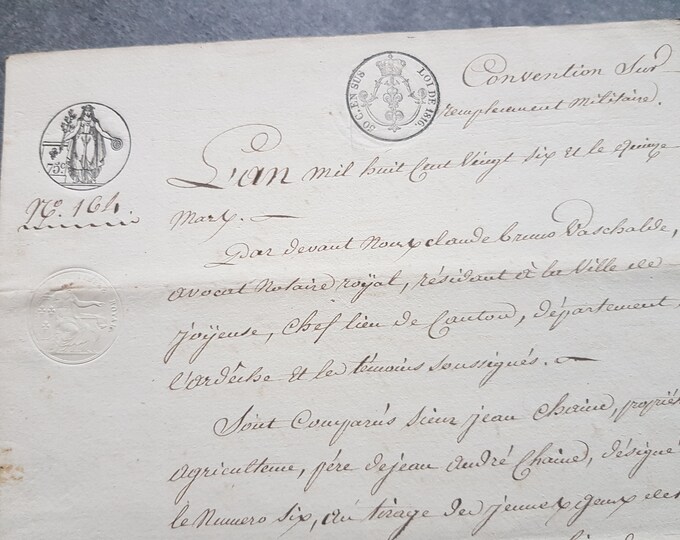 Convention Sur
remplacement militaire.
50 C. EN SUS LOI DE 1816.
75 C
N.º 164
L'an mil huit Cent Vingt six et le quinze
Marx. —
Par devant Nous claude bruno Paschalde,
avocat Notaire royal, résidant à la Ville de
joyeuse, Chef lieu de Canton, département
l'ardêche et les témoins soussignés. —
Sont Comparus sieur jean Chaine, proprié
agriculteur, père de jean andré Chaine, désigné
le Numero six, au tirage des jeunes gens de